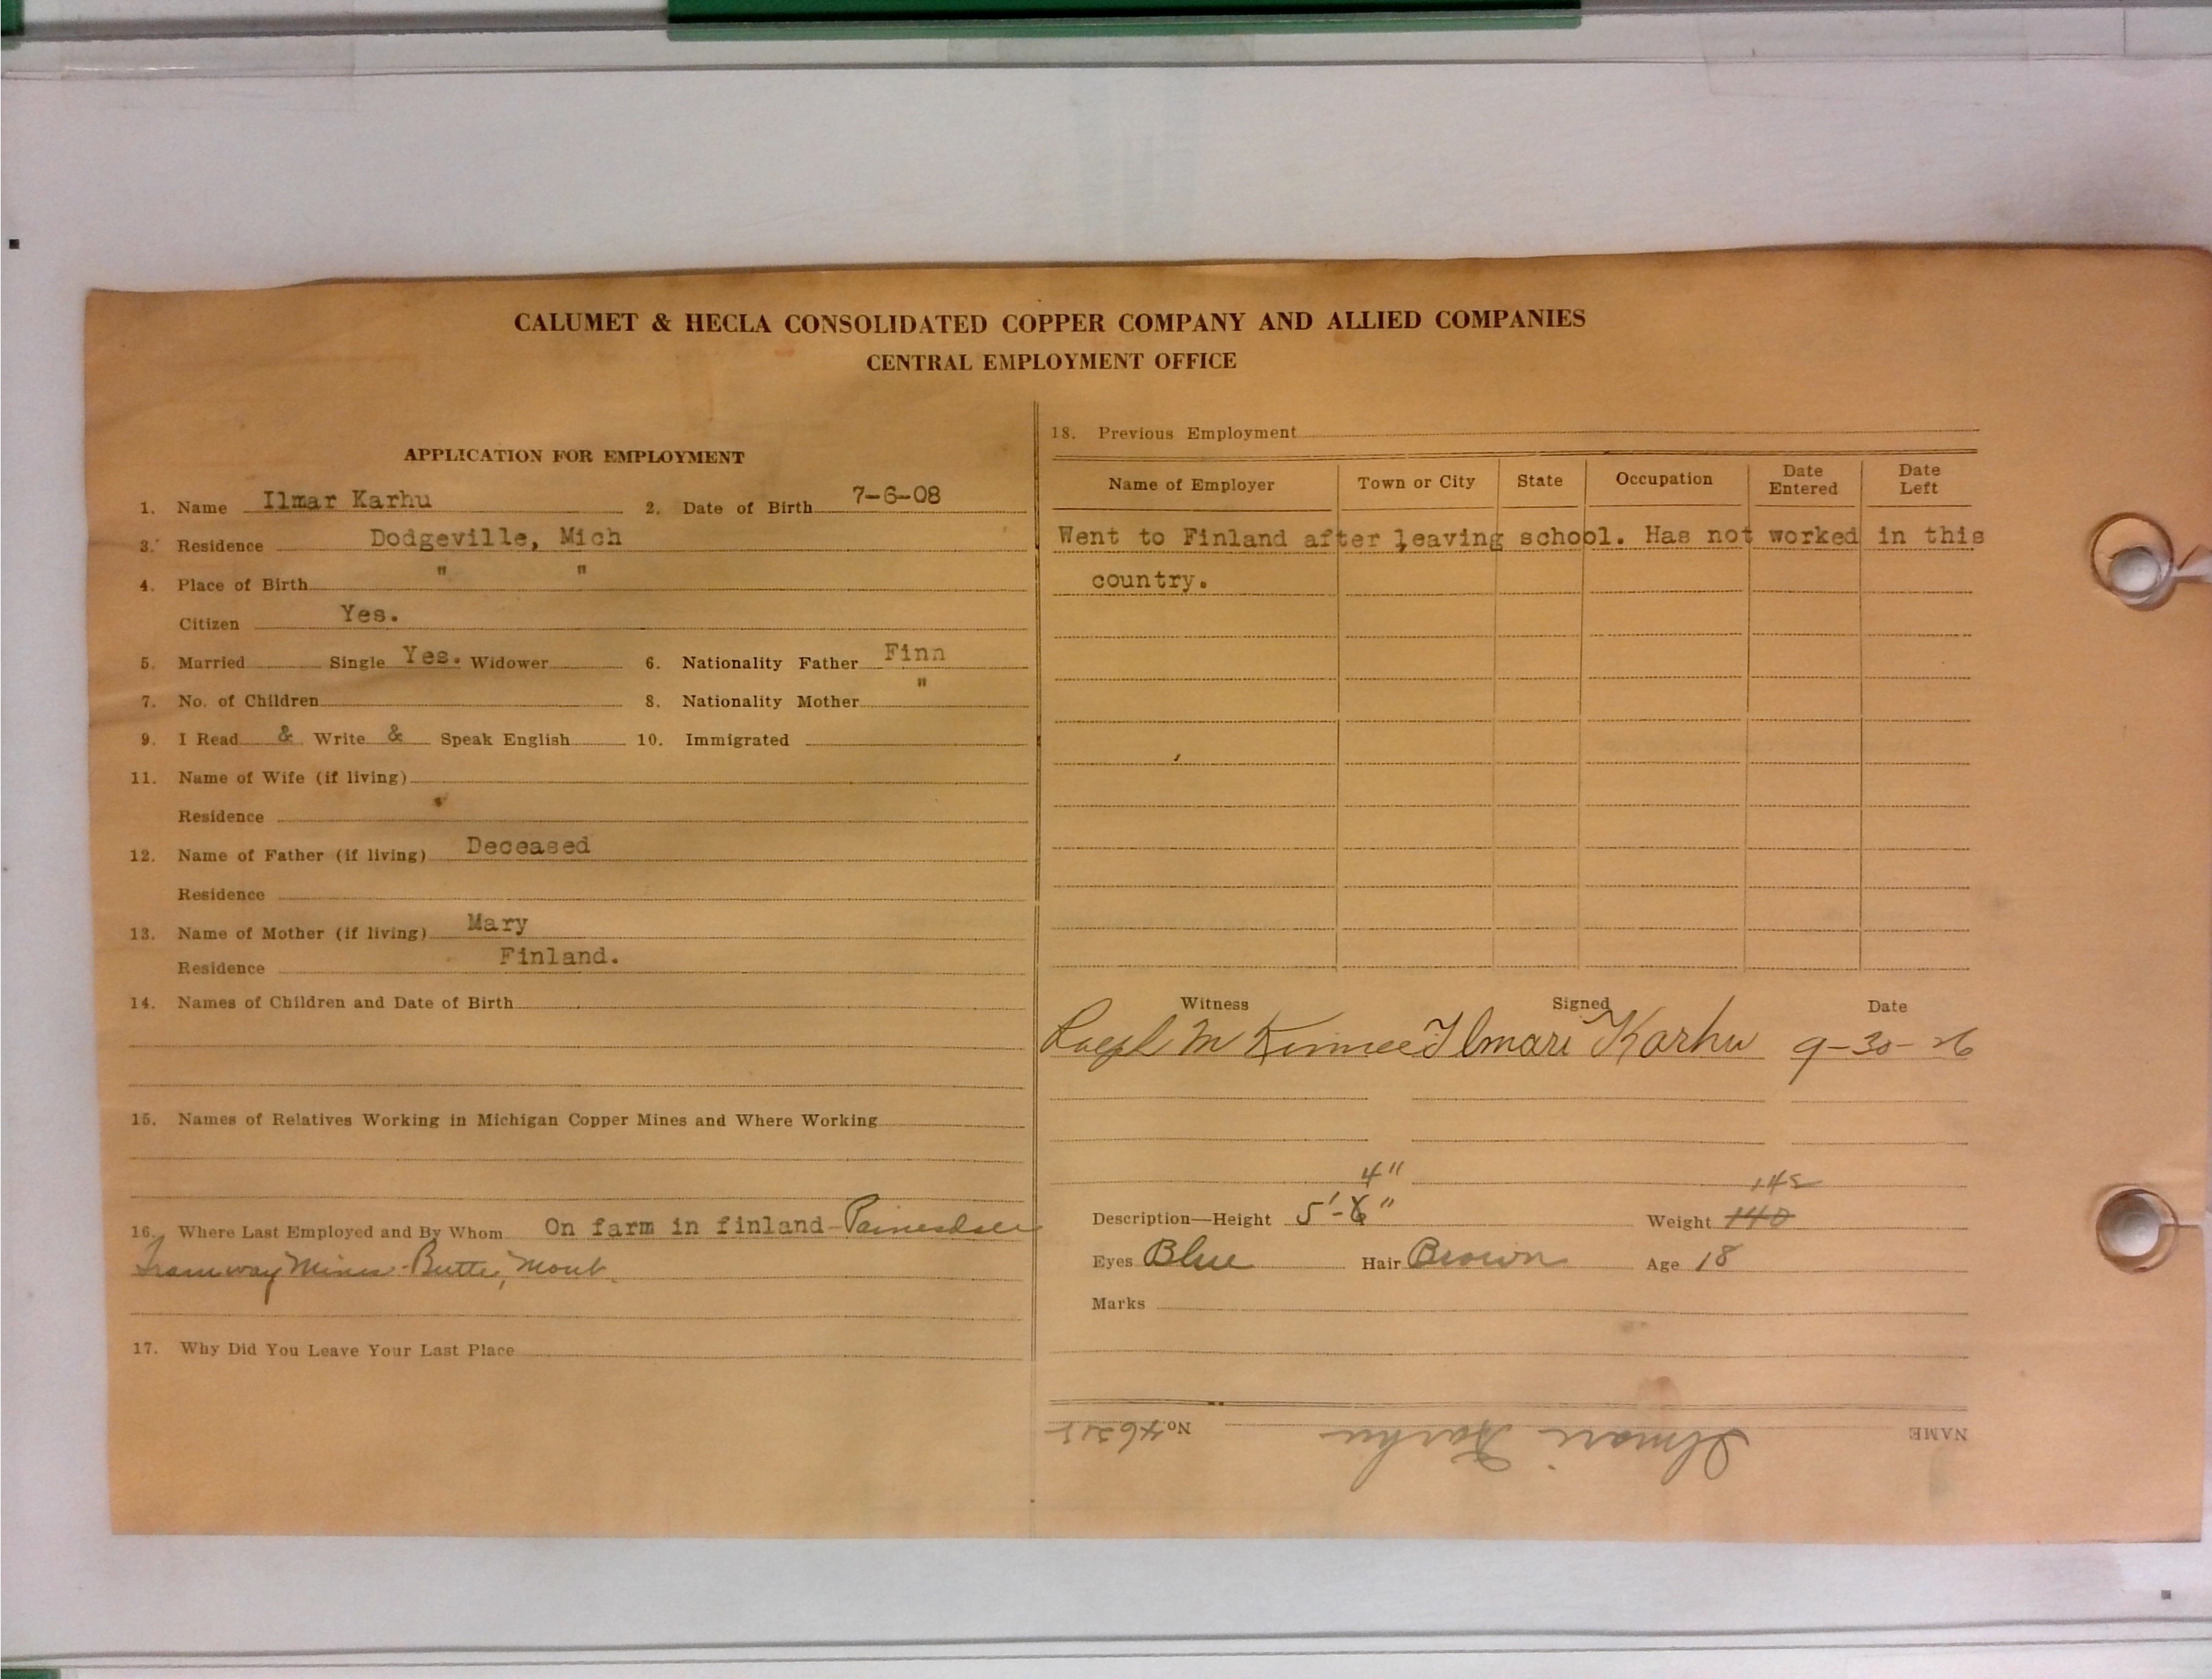 CALUMET & HECLA CONSOLIDATED COPPER COMPANY AND ALLIED COMPANIES
CENTRAL EMPLOYMENT OFFICE
APPLICATION FOR EMPLOYMENT
1. Name Ilmar Karhu 2. Date of Birth 7-6-08
3. Residence Dodgeville, Mich
4. Place of Birth " "
Citizen Yes.
5. Married Single Yes. Widower 6. Nationality Father Finn
7. No. of Children 8. Nationality Mother "
9. I Read & Write & Speak English 10. Immigrated
11. Name of Wife (if living)
Residence
12. Name of Father (if living) Deceased
Residence
13. Name of Mother (if living) Mary
Residence Finland.
14. Names of Children and Date of Birth
15. Names of Relatives Working in Michigan Copper Mines and Where Working
16. Where Last Employed and By Whom On farm in finland - Painesdale
Tramway Mines - Butte, Mont.
17. Why Did You Leave Your Last Place
18. Previous Employment
Name of Employer Town or City State Occupation Date Entered Date Left
Went to Finland after leaving school. Has not worked in this
country.
Witness Signed Date
M Ilmari Karhu 9-30-26
4" 145
Description—Height 5'-8" Weight 140
Eyes Blue Hair Brown Age 18
Marks
NAME Ilmari Karhu No.